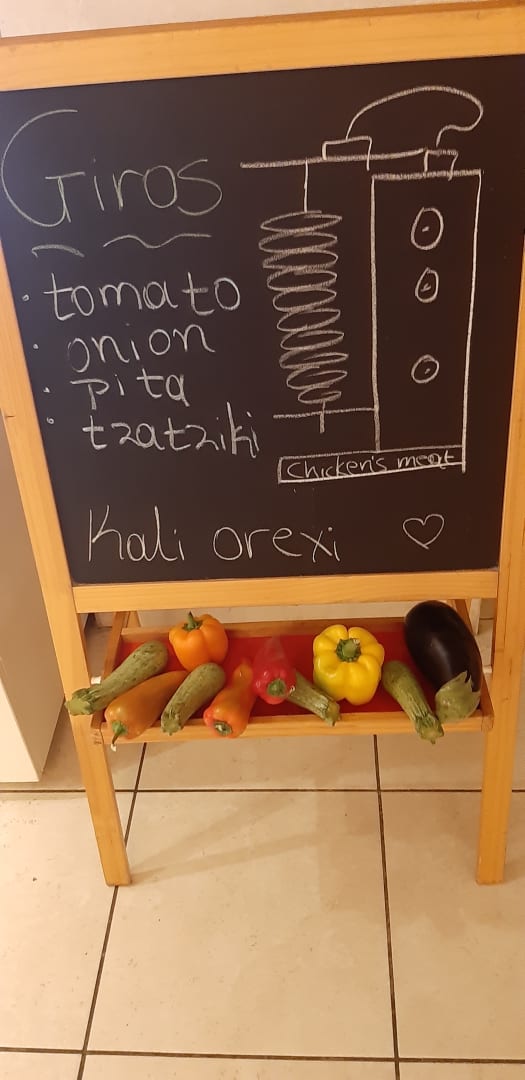 Giros
· tomato
· onion
· pita
· tzatziki
Chicken's meat
Kali orexi ♡